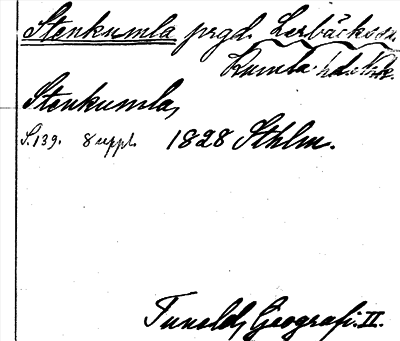 Stenkumla prgd. Lerbäcks sn.
Kumla hd. Nrk.
Stenkumla,
S. 139. 8 uppl. 1828 Sthlm.
Tuneld, Geografi. II.